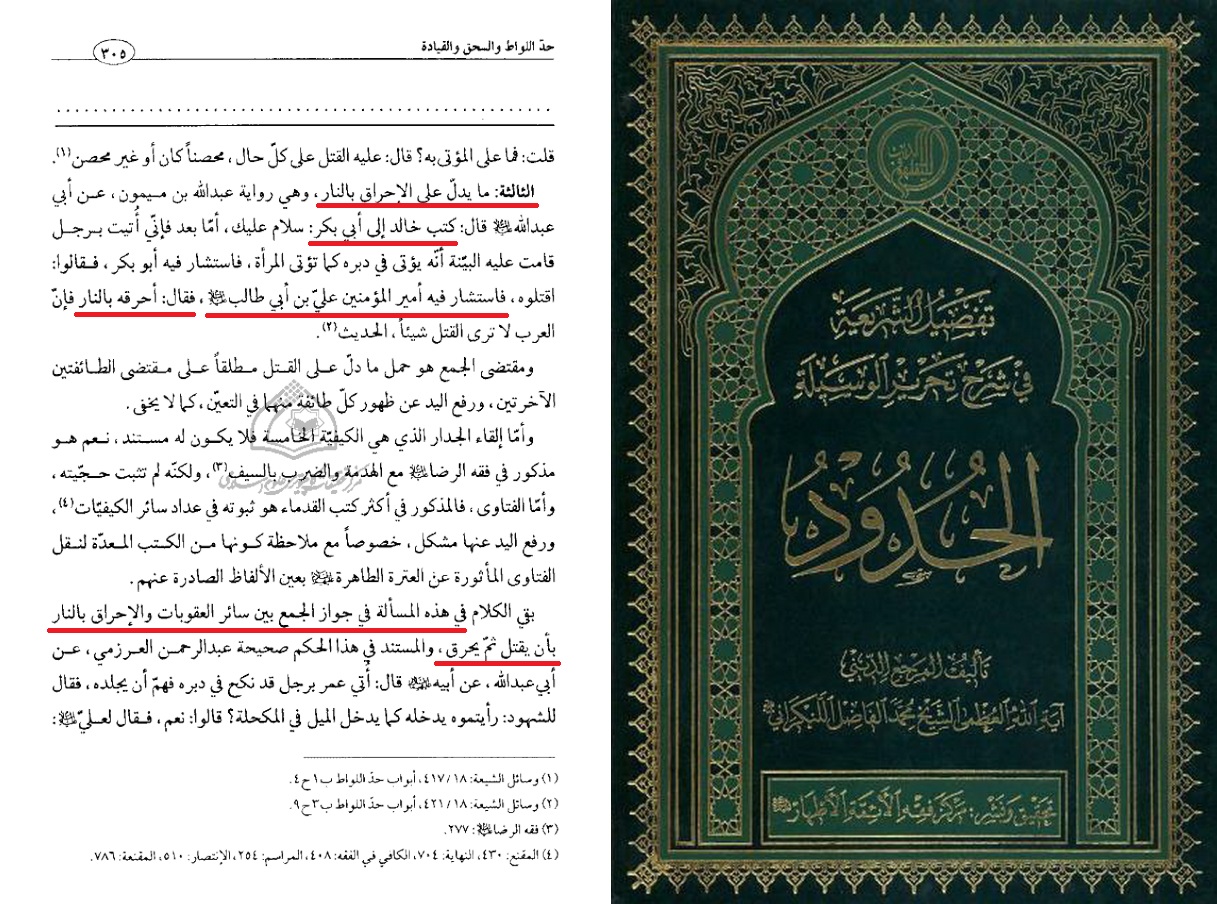 حدّ اللواط والسحق والقيادة
٣٠٥
قلت: فما على المؤتى به؟ قال: عليه القتل على كلّ حال، محصناً كان أو غير محصن(١).
الثالثة: ما يدلّ على الإحراق بالنار، وهي رواية عبدالله بن ميمون، عن أبي
عبدالله قال: كتب خالد إلى أبي بكر: سلام عليك، أمّا بعد فإنّي أُتيت برجل
قامت عليه البيّنة أنّه يؤتى في دبره كما تؤتى المرأة، فاستشار فيه أبو بكر، فقالوا:
اقتلوه، فاستشار فيه أمير المؤمنين عليّ بن أبي طالب، فقال: أحرقه بالنار فإنّ
العرب لا ترى القتل شيئاً، الحديث(٢).
ومقتضى الجمع هو حمل ما دلّ على القتل مطلقاً على مقتضى الطائفتين
الآخرتين، ورفع اليد عن ظهور كلّ طائفة منهما في التعيّن، كما لا يخفى.
وأمّا إلقاء الجدار الذي هي الكيفيّة الخامسة فلا يكون له مستند، نعم هو
مذكور في فقه الرضا مع الهدمة والضرب بالسيف(٣)، ولكنّه لم تثبت حجّيته،
وأمّا الفتاوى، فالمذكور في أكثر كتب القدماء هو ثبوته في عداد سائر الكيفيّات(٤)،
ورفع اليد عنها مشكل، خصوصاً مع ملاحظة كونها من الكتب المعدّة لنقل
الفتاوى المأثورة عن العترة الطاهرة بعين الألفاظ الصادرة عنهم.
بقي الكلام في هذه المسألة في جواز الجمع بين سائر العقوبات والإحراق بالنار
بأن يقتل ثمّ يحرق، والمستند في هذا الحكم صحيحة عبدالرحمن العرزمي، عن
أبي عبدالله، عن أبيه قال: أُتي عمر برجل قد نكح في دبره فهمّ أن يجلده، فقال
للشهود: رأيتموه يدخله كما يدخل الميل في المكحلة؟ قالوا: نعم، فقال لعليّ:
(١) وسائل الشيعة: ١٨ / ٤١٧، أبواب حدّ اللواط ب١ ح٤.
(٢) وسائل الشيعة: ١٨ / ٤٢١، أبواب حدّ اللواط ب٣ ح٩.
(٣) فقه الرضا: ٢٧٧.
(٤) المقنع: ٤٣٠، النهاية: ٧٠٤، الكافي في الفقه: ٤٠٨، المراسم: ٢٥٤، الإنتصار: ٥١٠، المقنعة: ٧٨٦.
تفصيل الشريعة
في شرح تحرير الوسيلة
الحدود
تأليف المرجع الديني
آية الله العظمى الشيخ محمد الفاضل اللنكراني
تحقيق ونشر: مركز فقه الأئمة الأطهار